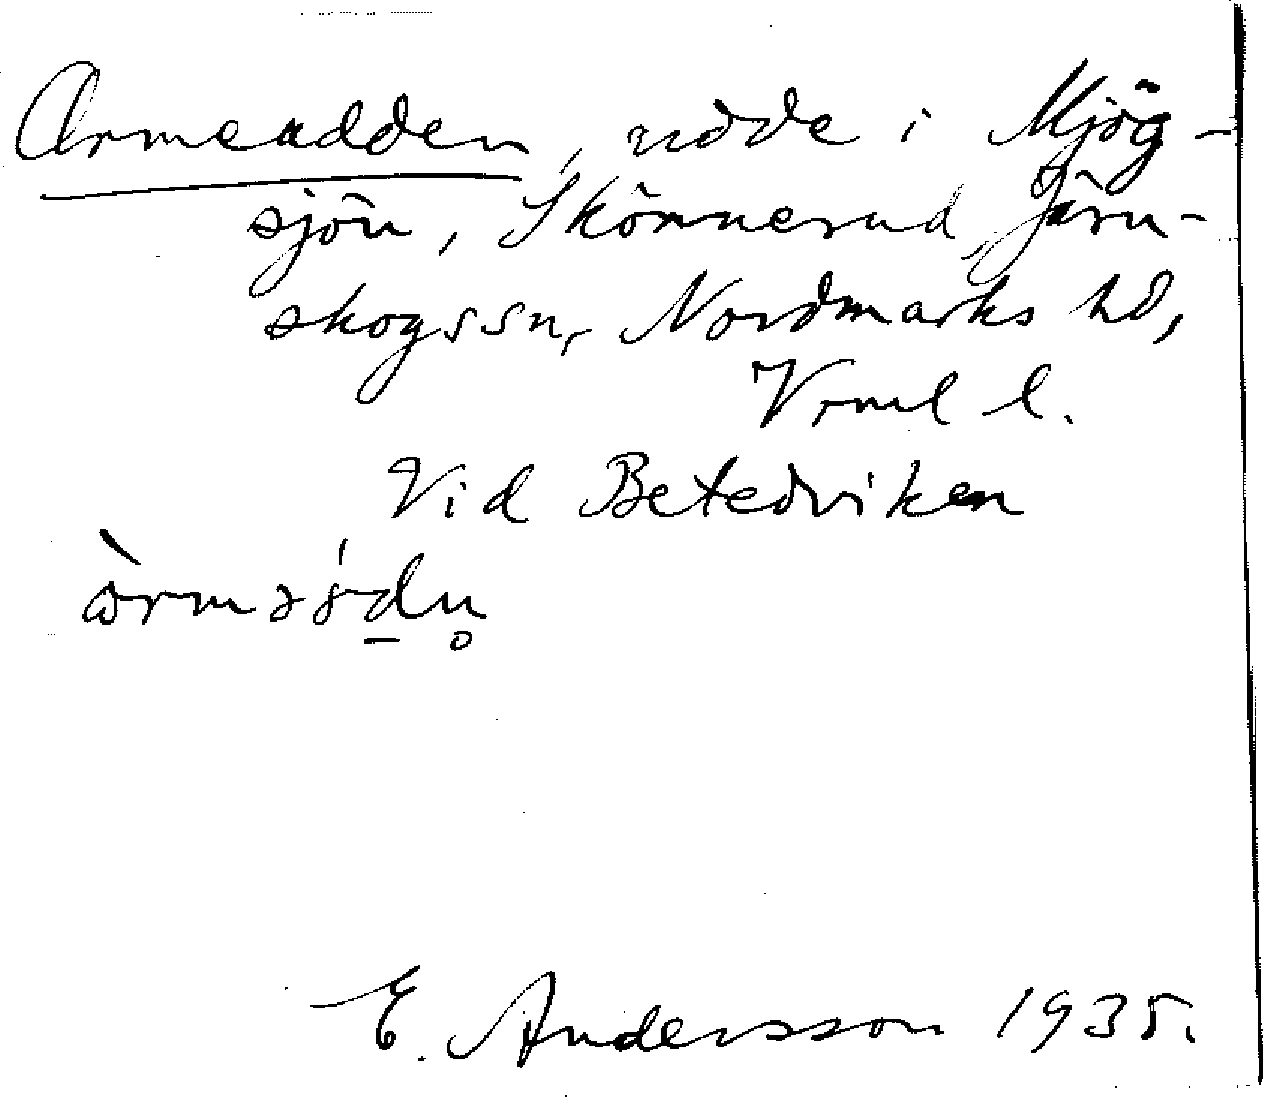 Armeudden, udde i Mjög-
sjön, Skönnerud, Järn-
skogs sn, Nordmarks hd,
Vrml l.
Vid Betedviken
E. Andersson 1935.